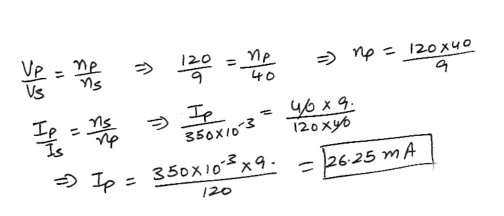 Vp/Vs = np/ns ⇒ 120/9 = np/40 ⇒ np = 120×40/9
Ip/Is = ns/np ⇒ Ip/350×10⁻³ = 40 × 9./120×40
⇒ Ip = 350×10⁻³ ×9./120 = 26.25 mA